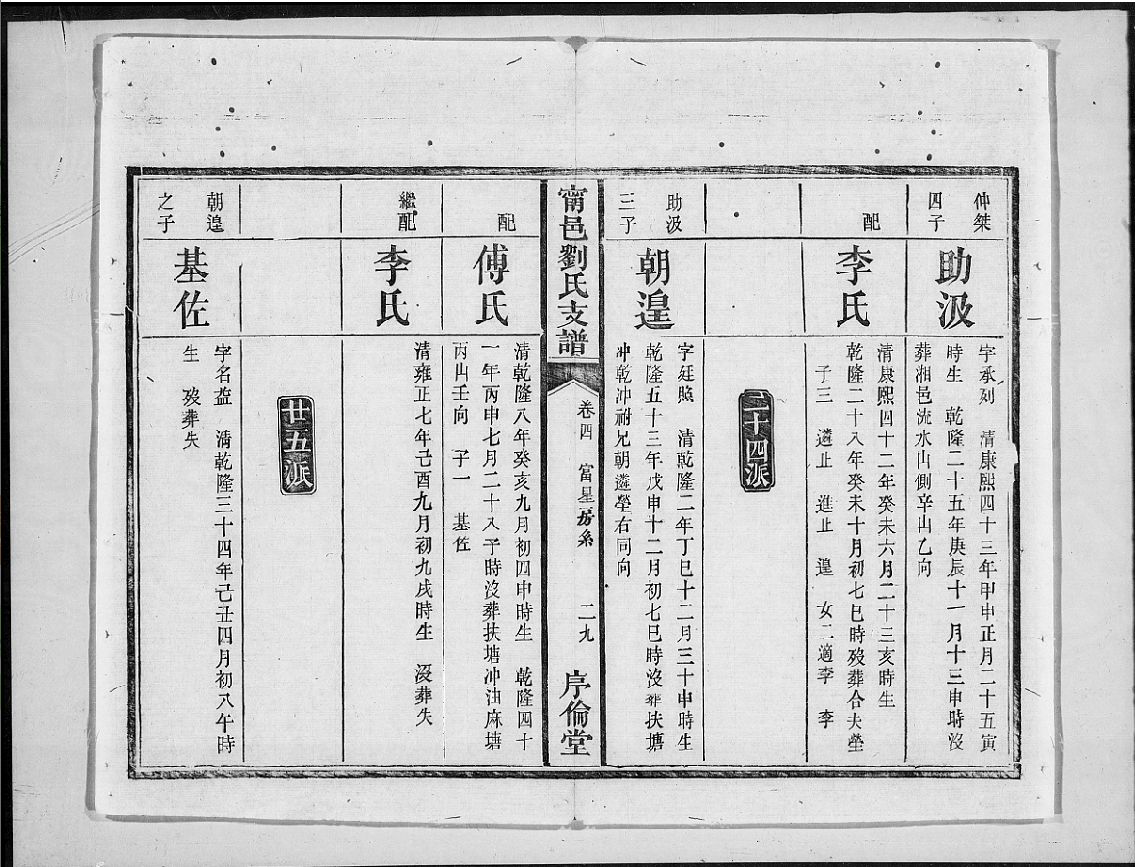 仲桀
四子
助汲
字承列　清康熙四十三年甲申正月二十五寅
時生　乾隆二十五年庚辰十一月十三申時沒
葬湘邑流水山側辛山乙向
配
李氏
清康熙四十二年癸未六月二十三亥時生
乾隆二十八年癸未十月初七巳時歿葬合夫塋
子三　遴止　進止　遑　女二適李　李
二十四派
助汲
三子
朝遑
字廷賜　清乾隆二年丁巳十二月三十申時生
乾隆五十三年戊申十二月初七巳時沒葬扶塘
冲乾冲祔兄朝遴塋右同向
甯邑劉氏支譜
卷四　富星房系　二九
序倫堂
配
傅氏
清乾隆八年癸亥九月初四申時生　乾隆四十
一年丙申七月二十八子時沒葬扶塘冲油麻塘
丙山壬向　子一　基佐
繼配
李氏
清雍正七年己酉九月初九戌時生　沒葬失
廿五派
朝遑
之子
基佐
字名益　清乾隆三十四年己丑四月初八午時
生　歿葬失